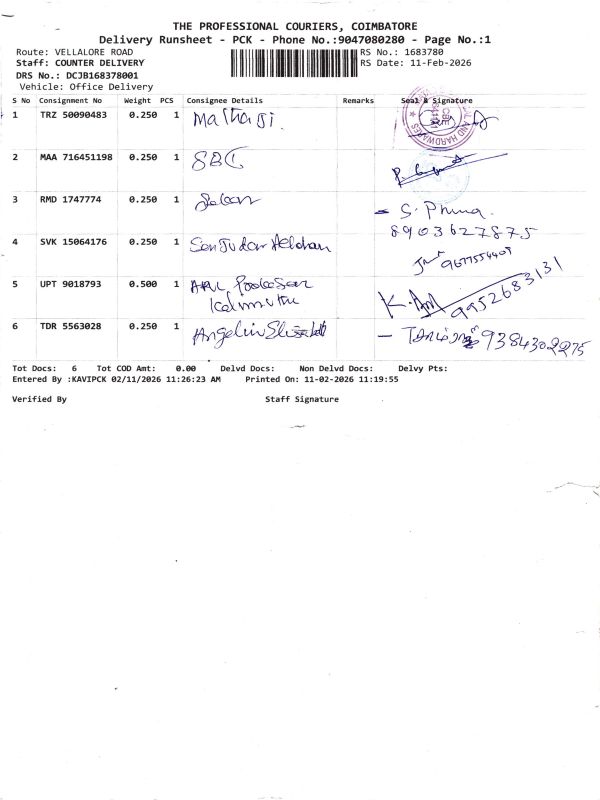 THE PROFESSIONAL COURIERS, COIMBATORE
Delivery Runsheet - PCK - Phone No.:9047080280 - Page No.:1
Route: VELLALORE ROAD
RS No.: 1683780
Staff: COUNTER DELIVERY
RS Date: 11-Feb-2026
DRS No.: DCJB168378001
Vehicle: Office Delivery
S No Consignment No Weight PCS Consignee Details Remarks Seal & Signature
1 TRZ 50090483 0.250 1 Mathaji.
2 MAA 716451198 0.250 1 SBC
3 RMD 1747774 0.250 1 - S.
8903627875
4 SVK 15064176 0.250 1
9677554407
5 UPT 9018793 0.500 1 Arul
K. 9952683131
6 TDR 5563028 0.250 1 Angelin - 9384302275
Tot Docs: 6 Tot COD Amt: 0.00 Delvd Docs: Non Delvd Docs: Delvy Pts:
Entered By :KAVIPCK 02/11/2026 11:26:23 AM Printed On: 11-02-2026 11:19:55
Verified By Staff Signature